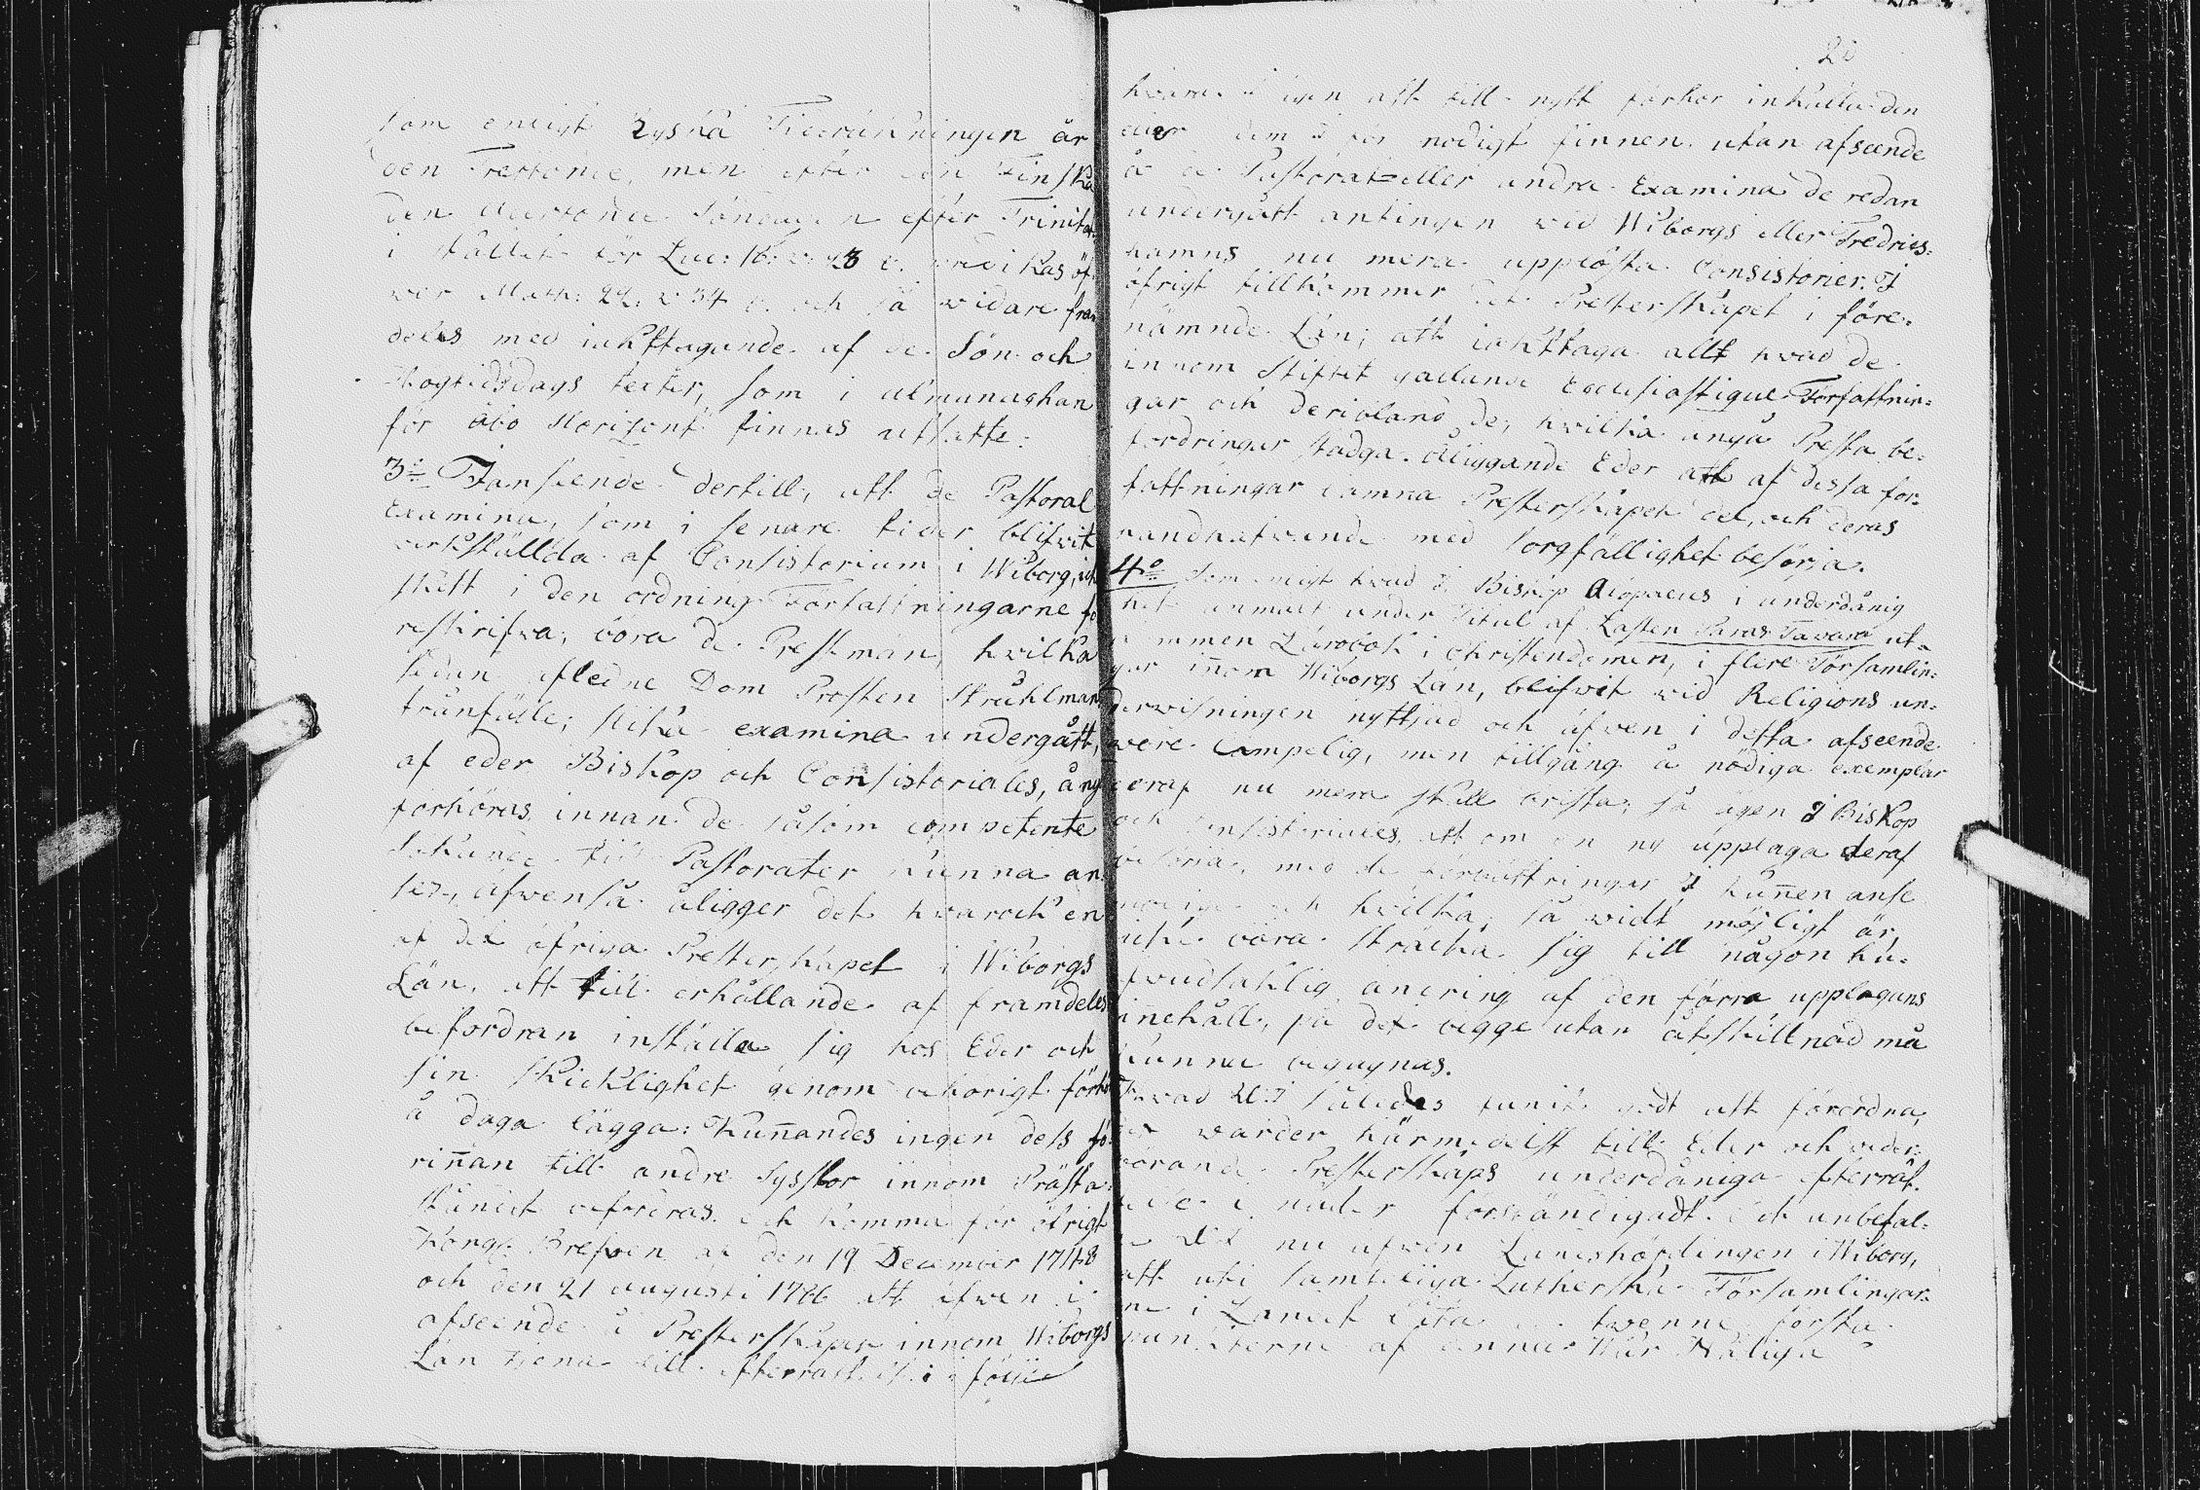 som enligt Ryska Tideräkningen är
den Trettonde, men efter den Finska
den Adertonde Söndagen efter Trinitat.
i stället för Luc: 16. v. 23 predikas öf-
wer Math: 22. v 34 och så widare fram
deles med iakttagande af de Sön och
Högtidsdags texter, som i almanachan
för Åbo Horizont finnas utsatte:
3:o I anseende dertill, att de Pastoral
Examina, som i senare tider blifwit
werkställda af Consistorium i Wiborg, icke
skett i den ordning Författningarne fö
reskrifwa, böra de Prestman, hwilka
sedan afledne Dom Prosten Stråhlman
frånfälle, slika examina undergått,
af eder Biskop och Consistoriales, ånyo
förhöras, innan de såsom competente
Sökande till Pastorater kunna an-
ses, äfwenså åligger det hwar och en
af det öfriga Presterskapet i Wiborgs
Län, att till erhållande af framdeles
befordran inställa sig hos Eder och
sin skicklighet genom behörigt förhör
å daga lägga: Kuñandes ingen dess fö-
riñan till andre Syslor innom Prästa-
ståndet befordras. Och komma för öfrigt
Kongl. Brefwen af den 19 December 1748
och den 21 augusti 1786 att äfwen i
afseende å Presterskapet innom Wiborgs
Län tjena till efterrättelse i följe
20
hwaraf I ägen att till nytt förhör inkalla den
eller dem I för nödigt finnen utan afseende
å de Pastorat eller andra Examina de redan
undergått antingen wid Wiborgs eller Fredrics-
hamns nu mera upplösta Consistorier. I
öfrigt tillkommer det Presterskapet i före-
nämnde Län, att iakttaga allt hwad de
innom Stiftet gällande Ecclesiastique Författnin-
gar och deribland de, hwilka angå Presta be-
fordringar stadga. Åliggande Eder att af dessa för-
fattningar lämna Presterskapet del, och deras
handhafwande med sorgfällighet besörja.
4:o Som enligt hwad I Biskop Alopaeus i underdånig
het anmält under Titul af Lasten Paras Tavara ut-
kommen Lärobok i Christendomen, i flere Församlin-
gar iñom Wiborgs Län, blifwit wid Religions un-
derwisningen nyttjad och äfwen i detta afseende
wore lämpelig, men tillgång å nödiga exemplar
deraf nu mera skall brista; så ägen I Biskop
och Consistoriales, att om en ny upplaga deraf
besörja, med de förbättringar I kuñen anse
nödige och hwilka, så widt möjligt är,
icke böra sträcka sig till någon hu-
fwudsaklig ändring af den förra upplagans
iñehåll, på det begge utan åtskillnad må
kunna begagnas.
Hwad Wi således funnit godt att förordna,
det warder härmedelst till Eder och weder-
börande Presterskaps underdåniga efterrät-
telse i nåder förständigadt. Och anbefal-
le Wi nu äfwen Landshöfdingen i Wiborg,
att uti samteliga Lutherska Församlingar-
ne i Länet låta de twenne första
punkterne af denna Wår Nådiga